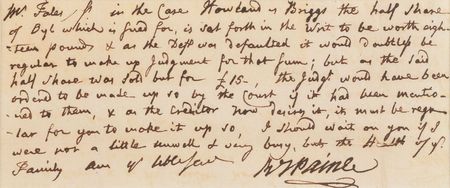 Mr. Fales, Sr. in the Case Howland vs Briggs the half share
of Byl which is sued for, is set forth in the Writ to be worth eigh-
-teen pounds & as the Deft was defaulted it would doubtless be
regular to make up Judgment for that sum; but as the said
half share was sold but for £15- the Judgt would have been
ordered to be made up so by the Court if it had been mentio-
-ned to them, & as the Creditor now desires it, it must be regu-
-lar for you to make it up so, I should wait on you if I
were not a little unwell & very busy, but the
Family am yr hble Servt RTPaine